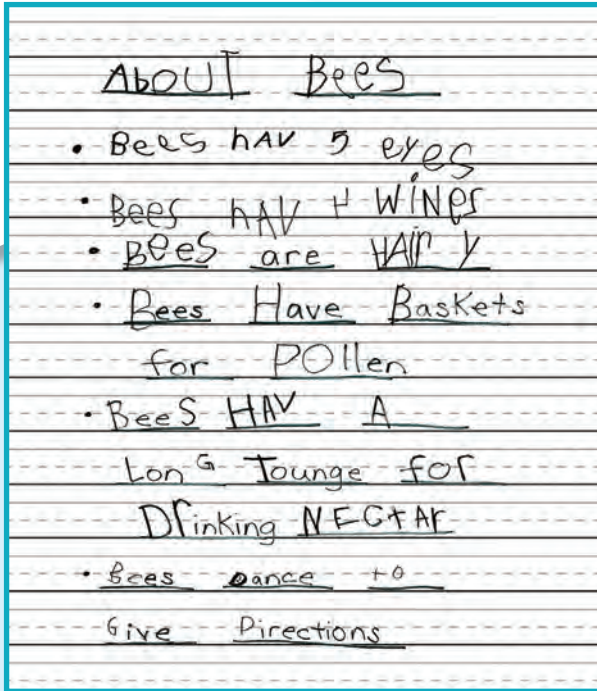 AbOUT BeeS
• BeeS hAV 5 eyes
• Bees hAV 4 WiNgs
• BeeS are HAIr y
• Bees Have Baskets
for POllen
• BeeS HAV A
LonG Tounge for
Drinking NECtAr
• Bees Dance to
Give Directions